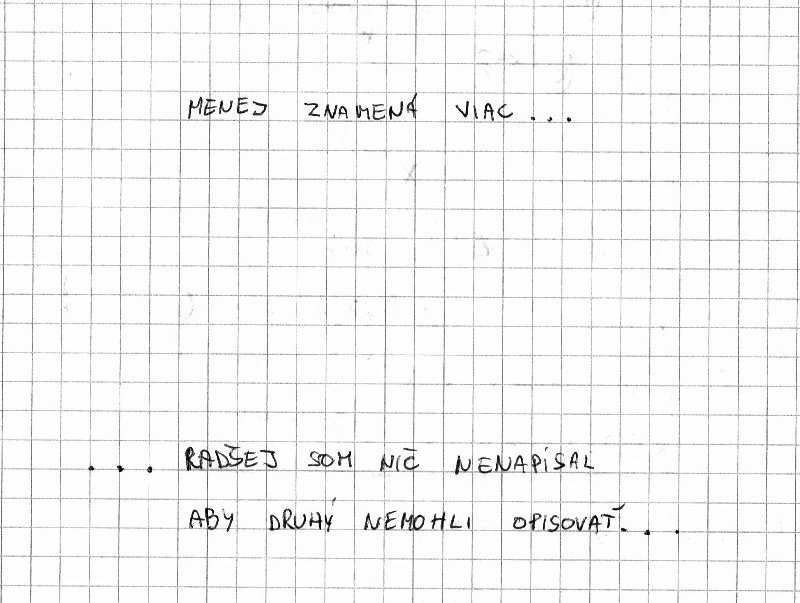 MENEJ ZNAMENÁ VIAC...
... RADŠEJ SOM NIČ NENAPÍSAL
ABY DRUHÝ NEMOHLI OPISOVAŤ...